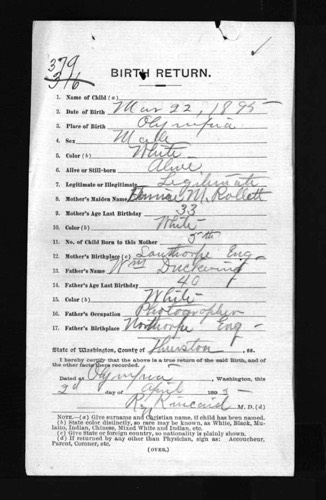 379
316
BIRTH RETURN.
1. Name of Child (a)
2. Date of Birth Mar 22, 1895
3. Place of Birth Olympia
4. Sex Male
5. Color (b) White
6. Alive or Still-born Alive
7. Legitimate or Illegitimate Legitimate
8. Mother's Maiden Name M. Rollett
9. Mother's Age Last Birthday 33
10. Color (b) White
11. No. of Child Born to this Mother 5th
12. Mother's Birthplace (c) Eng
13. Father's Name Wm Duckering
14. Father's Age Last Birthday 40
15. Color (b) White
16. Father's Occupation Photographer
17. Father's Birthplace Northorpe Eng
State of Washington, County of Thurston, ss.
I hereby certify that the above is a true return of the said Birth, and of
the other facts there recorded.
Dated at Olympia, Washington, this
2d day of April 1895
Kincaid M. D. (d)
NOTE.—(a) Give surname and Christian name, if child has been named.
(b) State color distinctly, so race may be known, as White, Black, Mu-
latto, Indian, Chinese, Mixed White and Indian, etc.
(c) Give State or foreign country, so nationality is plainly shown.
(d) If returned by any other than Physician, sign as: Accoucheur,
Parent, Coroner, etc.
(OVER.)